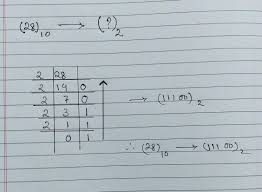 (28)₁₀ ⟶ (?)₂
2 | 28
2 | 14 | 0
2 | 7 | 0
2 | 3 | 1
2 | 1 | 1
0 | 1
⟶ (11100)₂
∴ (28)₁₀ ⟶ (11100)₂